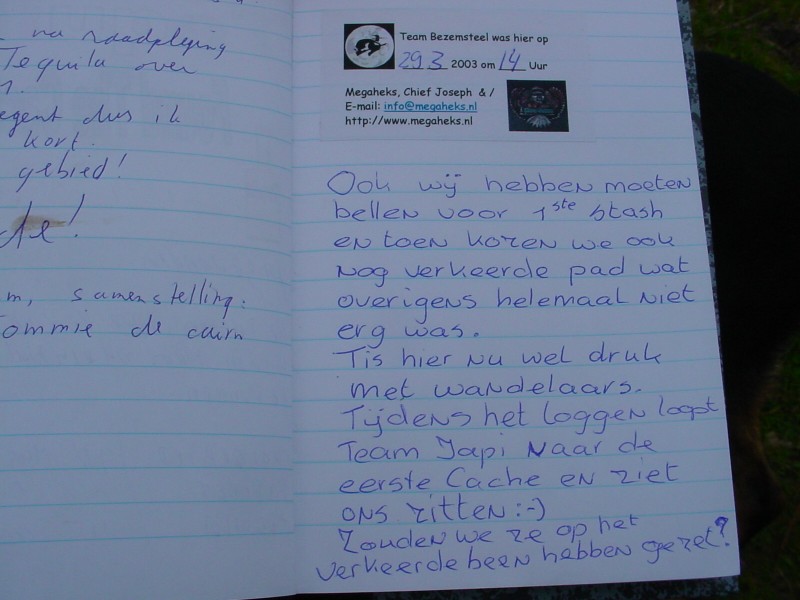 na raadpleging
Tequila over
n.
egent dus ik
kort.
gebied!
de!
m, samenstelling:
ommie de cairn
Team Bezemsteel was hier op
29 3 2003 om 14 Uur
Megaheks, Chief Joseph & /
E-mail: info@megaheks.nl
http://www.megaheks.nl
Ook wij hebben moeten
bellen voor 1ste stash
en toen kozen we ook
nog verkeerde pad wat
overigens helemaal niet
erg was.
Tis hier nu wel druk
met wandelaars.
Tijdens het loggen loopt
Team Japi naar de
eerste Cache en ziet
ons zitten :-)
Zouden we ze op het
verkeerde been hebben gezet?